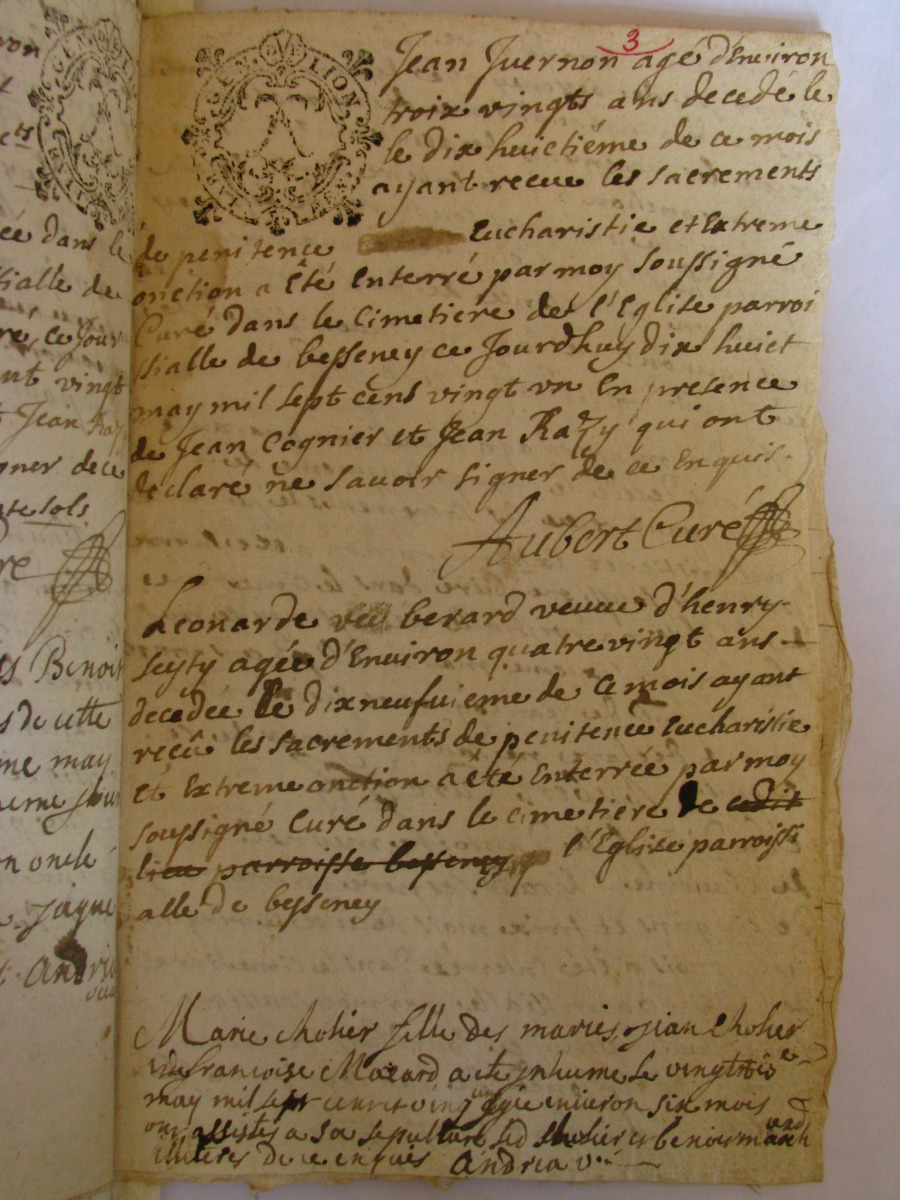 3
GEN. DE LION
Jean Juernon agé d'Environ
troix vingts ans decedé le
le dix huictiéme de ce mois
ayant recue les sacrements
de penitence Eucharistie et Extreme
onction a Eté Enterré par moy soussigné
Curé dans le Cimetiere de l'Eglise parroi
ssialle de besseney ce Jourdhuy dix huict
may mil sept cens vingt vn En presence
de Jean Cognier et Jean Razy qui ont
declaré ne savoir signer de ce Enquis.
Aubert Curé
Leonarde berard veuue d'henry
Seyty agée d'Environ quatre vingt ans
decedée le dix neufuieme de ce mois ayant
reçû les sacrements de penitence Eucharistie
et Extreme onction a été Enterrée par moy
soussigné Curé dans le cimetiere de cedit
lieu parroisse besseney l'Eglise parroissi
alle de besseney
Marie Cholier fille des maries Jian Cholier
francoise Mazard a ete Jnhume le vingtroie
may mil sept cent et vingt un agée enuiron six mois
ont assistés a sa sepulture led Cholier et benoit
illiteres de ce enquis Andria v
on
cts
ée dans le
sialle de
ré, ce Jour
nt vingt
t Jean Raz
igner de ce
nte sols
re
Benoit
s de cette
me may
n oncle
Andria